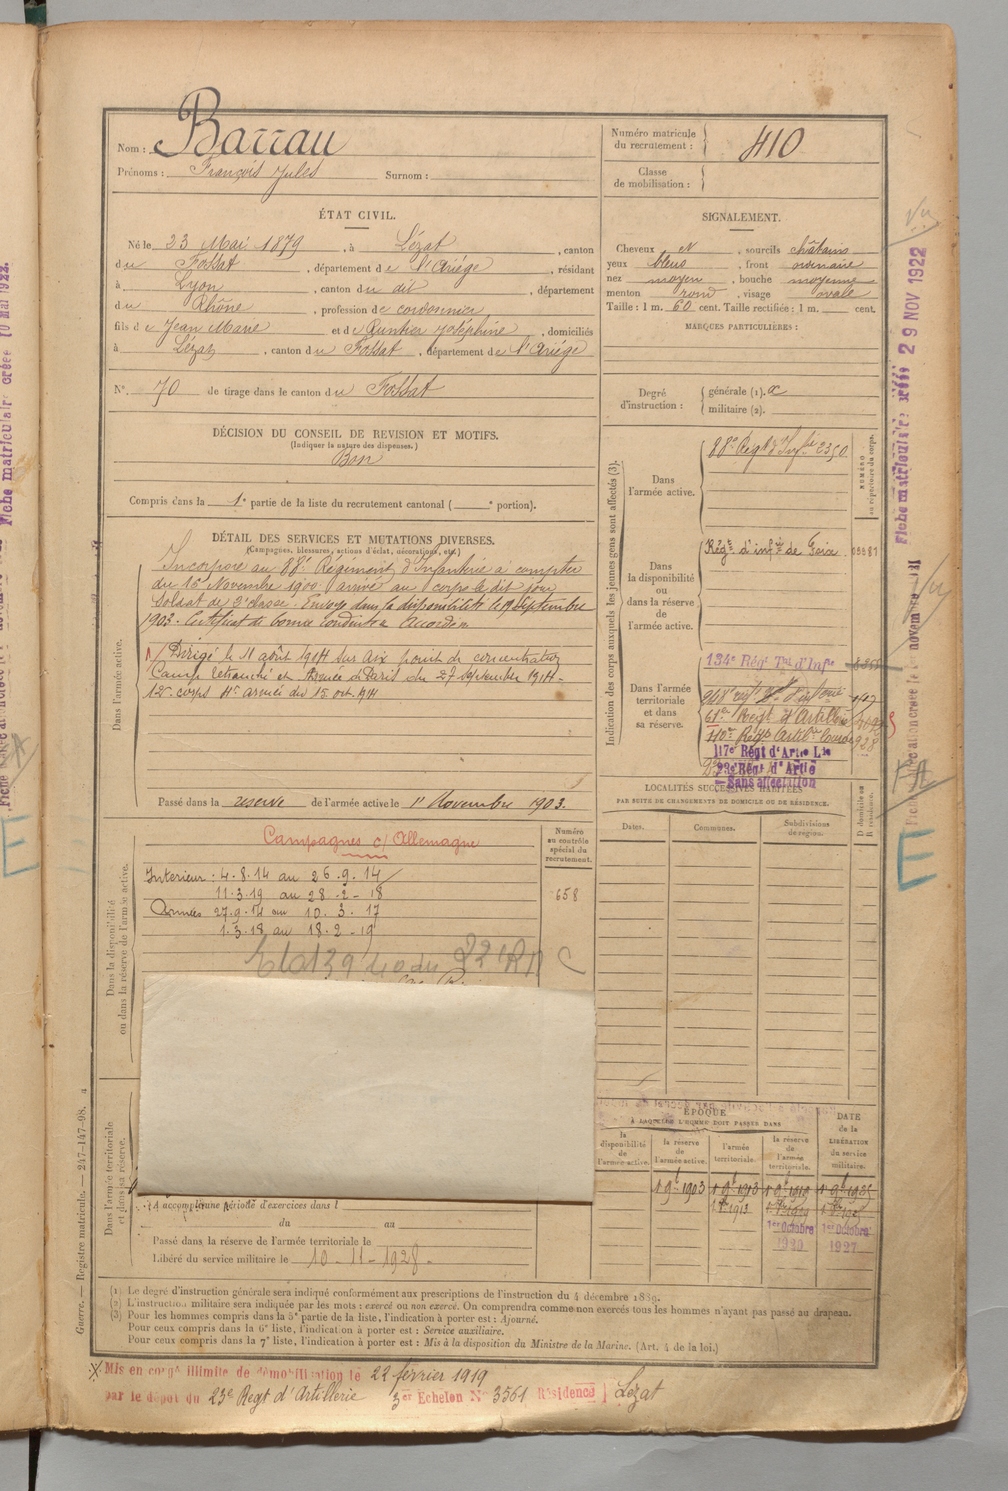 Nom : Barrau
Prénoms : François Jules Surnom :
Numéro matricule du recrutement : 410
Classe de mobilisation :
ÉTAT CIVIL.
Né le 23 Mai 1879, à Lézat, canton
du Fossat, département de l'Ariége, résidant
à Lyon, canton du dit, département
du Rhône, profession de cordonnier
fils de Jean Marie et de Runtier Joséphine, domiciliés
à Lézat, canton du Fossat, département de l'Ariége
N°. 70 de tirage dans le canton du Fossat
SIGNALEMENT.
Cheveux et, sourcils châtains
yeux bleus, front ordinaire
nez moyen, bouche moyenne
menton rond, visage ovale
Taille : 1 m. 60 cent. Taille rectifiée : 1 m. cent.
MARQUES PARTICULIÈRES :
Degré d'instruction : générale (1).
militaire (2).
DÉCISION DU CONSEIL DE REVISION ET MOTIFS.
(Indiquer la nature des dispenses.)
Bon
Compris dans la 1e partie de la liste du recrutement cantonal ( e portion).
DÉTAIL DES SERVICES ET MUTATIONS DIVERSES.
(Campagnes, blessures, actions d'éclat, décorations, etc.)
Dans l'armée active.
Incorporé au 88e Régiment d'Infanterie à compter
du 15 Novembre 1900 arrivé au corps le dit jour
Soldat de 2e classe. Envoyé dans la disponibilité le 19 Septembre
1903. Certificat de bonne conduite Accordé.
Dirigé le 11 août 1914 sur Aix point de concentration
Camp retranché et Armée de Paris du 27 septembre 1914 -
12e corps 4e armée du 15 oct. 1914
Passé dans la reserve de l'armée active le 1er Novembre 1903.
Indication des corps auxquels les jeunes gens sont affectés (3).
Dans l'armée active.
88e Regt d'Infie 2350
NUMÉRO au répertoire du corps.
Dans la disponibilité ou dans la réserve de l'armée active.
Régt d'infie de Foix
Dans l'armée territoriale et dans sa réserve.
134e Régt Tal d'Infie
61e Regt d'Artillerie
110e Régt Artilie lourde 928
117e Régt d'Artie Lde
23e Régt d'Artie
Sans affectation
LOCALITÉS SUCCESSIVES HABITÉES
PAR SUITE DE CHANGEMENTS DE DOMICILE OU DE RÉSIDENCE.
Dates. Communes. Subdivisions de région. D domicile ou R résidence.
Dans la disponibilité ou dans la réserve de l'armée active.
Campagnes c/ Allemagne
Numéro au contrôle spécial du recrutement.
658
Interieur : 4.8.14 au 26.9.14
11.3.19 au 28-2-18
Armées 27.9.14 au 10.3.17
1.3.18 au 18-2-19
Dans l'armée territoriale et dans sa réserve.
ÉPOQUE
À LAQUELLE L'HOMME DOIT PASSER DANS
la disponibilité de l'armée active.
la réserve de l'armée active.
l'armée territoriale.
la réserve de l'armée territoriale.
DATE de la LIBÉRATION du service militaire.
1er Octobre 1920
1er Octobre 1927
A accompli une période d'exercices dans l
du au
Passé dans la réserve de l'armée territoriale le
Libéré du service militaire le 10-11-1928.
(1) Le degré d'instruction générale sera indiqué conformément aux prescriptions de l'instruction du 4 décembre 1889.
(2) L'instruction militaire sera indiquée par les mots : exercé ou non exercé. On comprendra comme non exercés tous les hommes n'ayant pas passé au drapeau.
(3) Pour les hommes compris dans la 5e partie de la liste, l'indication à porter est : Ajourné.
Pour ceux compris dans la 6e liste, l'indication à porter est : Service auxiliaire.
Pour ceux compris dans la 7e liste, l'indication à porter est : Mis à la disposition du Ministre de la Marine. (Art. 4 de la loi.)
Mis en congé illimité de démobilisation le 22 février 1919
par le dépôt du 23e Regt d'Artillerie 3er Echelon N° 3361 Résidence Lézat
Guerre. — Registre matricule. — 247-147-98.
Fiche matriculaire créée 29 NOV 1922
E